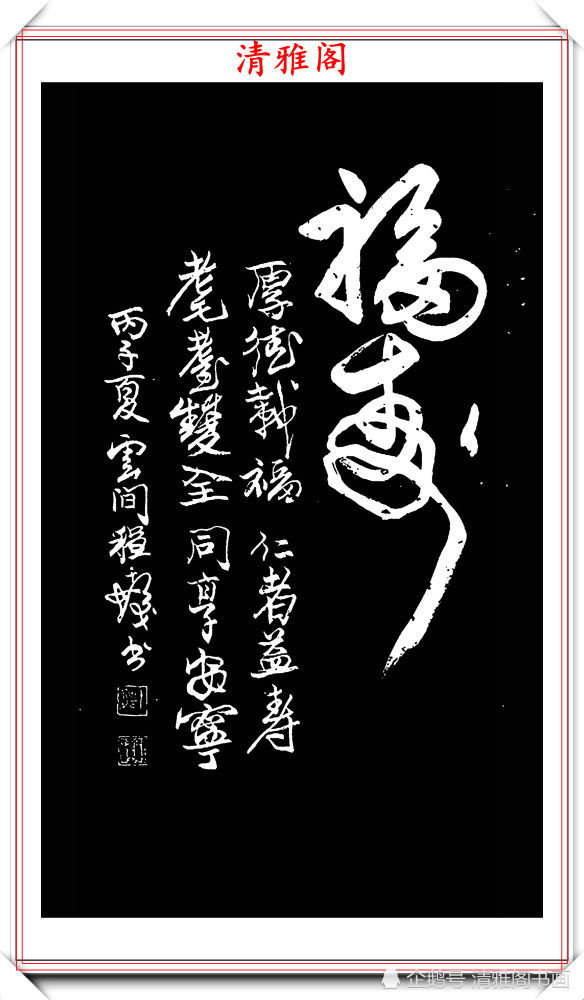 清雅阁
福寿
厚德載福 仁者益壽
耄耋雙全 同享安寧
丙子夏雲间程十髮书
企鹅号 清雅阁书画